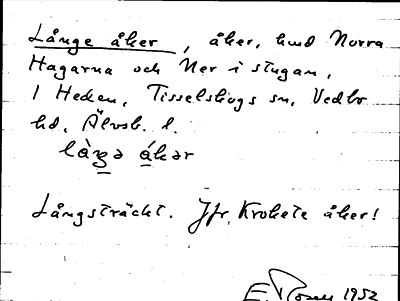 Långe åker, åker, hmd Norra
Hagarna och Ner i stugan,
1 Heden, Tisselskogs sn, Vedbo
hd, Älvsb. l.
làŋə ákər
Långsträckt. Jfr Krokete åker!
E. Rosen 1952